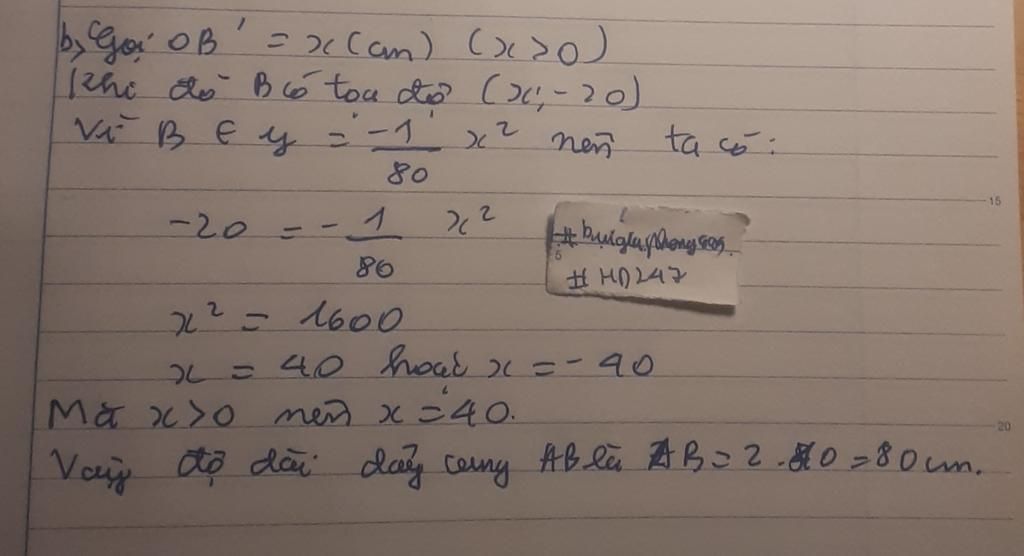 b, Gọi OB' = x (cm) (x > 0)
Khi đó B có toạ độ (x; -20)
Vì B ∈ y = -1/80 x² nên ta có:
-20 = -1/80 x²
15
#HD247
x² = 1600
x = 40 hoặc x = -40
Mà x > 0 nên x = 40.
20
Vậy độ dài dây cung AB là AB = 2 . 40 = 80 cm.